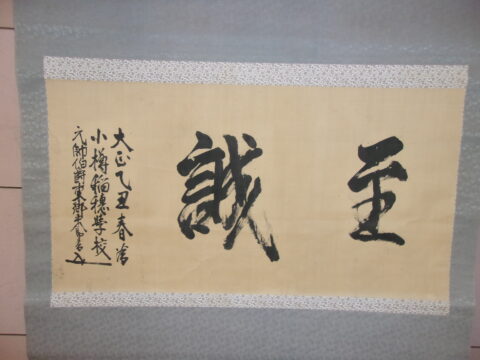 至誠
大正乙丑春為
小樽稲穂学校
元帥伯爵東郷平八郎書